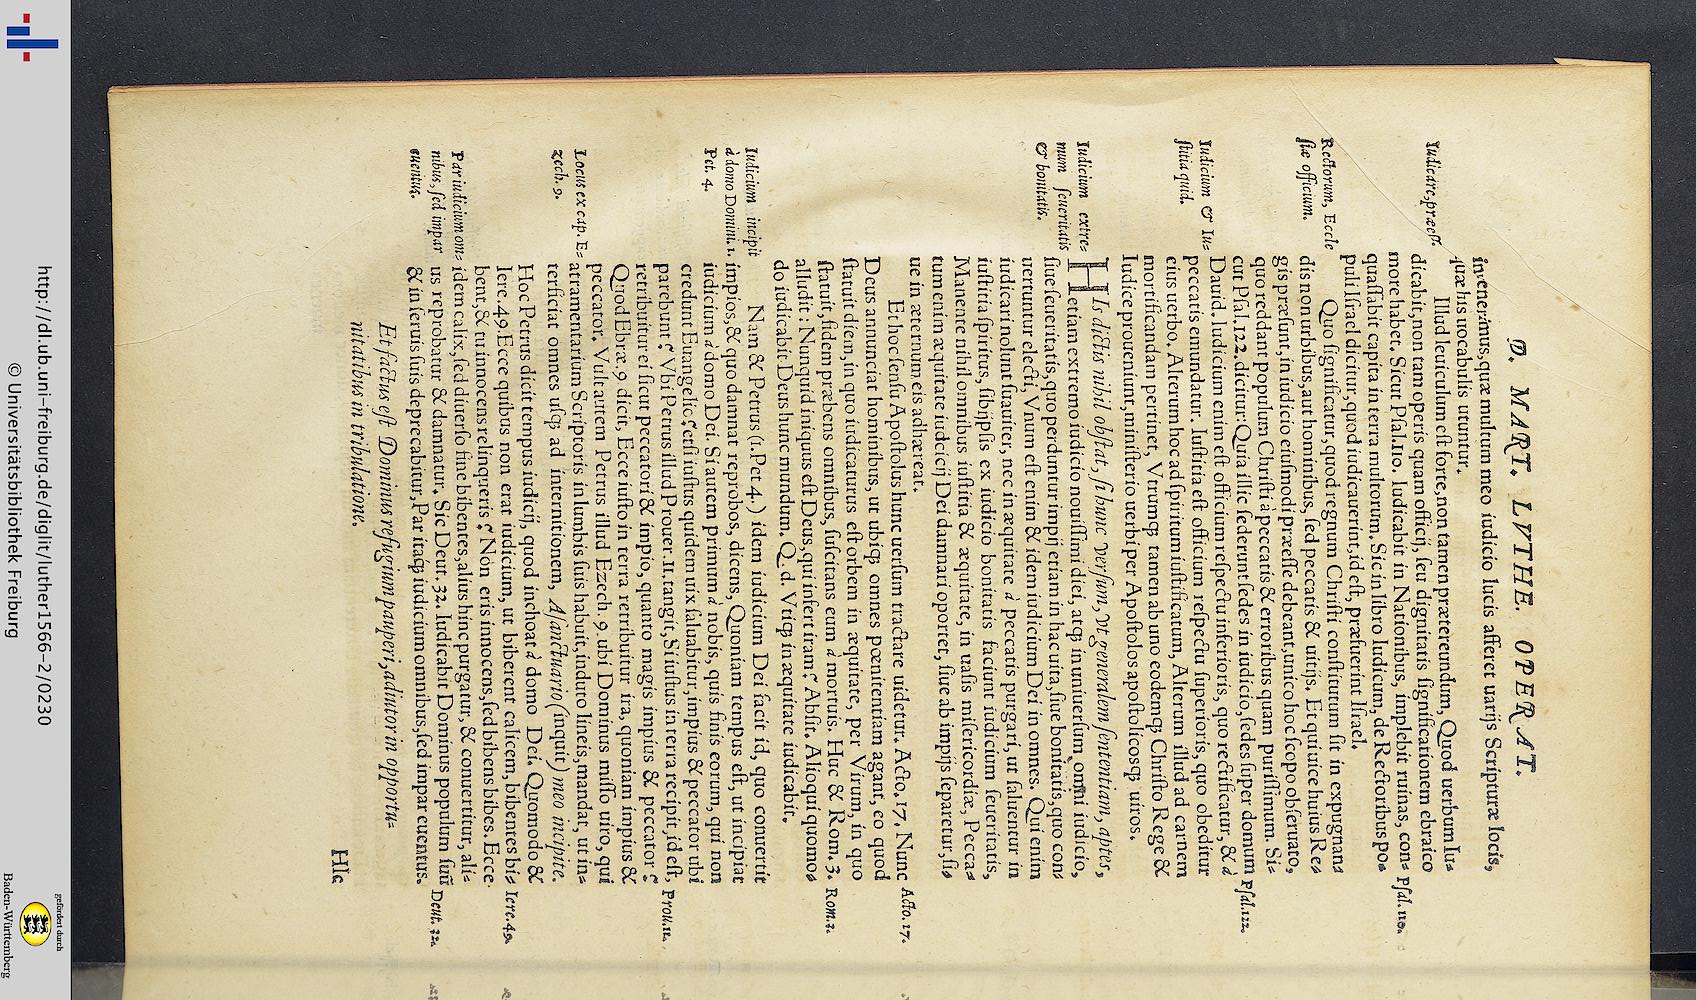 D. MART. LVTHE. OPERAT.
inuenerimus, quæ multum meo iudicio lucis afferet uarijs Scripturæ locis,
quæ his uocabulis utuntur.
Iudicare, præesse.
Illud leuiculum est forte, non tamen prætereundum, Quod uerbum Iu-
dicabit, non tam operis quam officij, seu dignitatis significationem ebraico
more habet. Sicut Psal. 110. Iudicabit in Nationibus, implebit ruinas, con-
Psal. 110.
quassabit capita in terra multorum. Sic in libro Iudicum, de Rectoribus po-
puli Israel dicitur, quod iudicauerint, id est, præfuerint Israel.
Rectorum, Eccle
siæ officium.
Quo significatur, quod regnum Christi constitutum sit in expugnan-
dis non urbibus, aut hominibus, sed peccatis & uitijs. Et qui uice huius Re-
gis præsunt, in iudicio eiusmodi præesse debeant, unico hoc scopo obseruato,
quo reddant populum Christi à peccatis & erroribus quam purissimum. Si-
cut Psal. 122. dicitur: Quia illic sederunt sedes in iudicio, sedes super domum
Psal. 122.
Iudicium & Iu-
stitia quid.
Dauid. Iudicium enim est officium respectu inferioris, quo rectificatur, & à
peccatis emundatur. Iustitia est officium respectu superioris, quo obeditur
eius uerbo. Alterum hoc ad spiritum iustificatum, Alterum illud ad carnem
mortificandam pertinet, Vtrumq; tamen ab uno eodemq; Christo Rege &
Iudice proueniunt, ministerio uerbi per Apostolos apostolicosq; uiros.
Iudicium extre-
mum seueritatis
& bonitatis.
HIs dictis nihil obstat, si hunc versum, vt generalem sententiam, aptes,
etiam extremo iudicio nouissimi diei, atq; in uniuersum, omni iudicio,
siue seueritatis, quo perduntur impij etiam in hac uita, siue bonitatis, quo con-
uertuntur electi, Vnum est enim & idem iudicium Dei in omnes. Qui enim
iudicari nolunt suauiter, nec in æquitate à peccatis purgari, ut saluentur in
iustitia spiritus, sibijpsis ex iudicio bonitatis faciunt iudicium seueritatis,
Manente nihilominus iustitia & æquitate, in uasis misericordiæ, Pecca-
tum enim æquitate iudicij Dei damnari oportet, siue ab impijs separetur, si-
ue in æternum eis adhæreat.
Et hoc sensu Apostolus hunc uersum tractare uidetur. Acto. 17. Nunc
Acto. 17.
Deus annunciat hominibus, ut ubiq; omnes pœnitentiam agant, eo quod
statuit diem, in quo iudicaturus est orbem in æquitate, per Virum, in quo
statuit, fidem præbens omnibus, suscitans eum à mortuis. Huc & Rom. 3.
Rom. 3.
alludit: Nunquid iniquus est Deus, qui infert iram? Absit. Alioqui quomo-
do iudicabit Deus hunc mundum. Q. d. Vtiq; in æquitate iudicabit.
Iudicium incipit
à domo Domini. 1.
Pet. 4.
Nam & Petrus (1. Pet. 4.) idem iudicium Dei facit id, quo conuertit
impios, & quo damnat reprobos, dicens, Quoniam tempus est, ut incipiat
iudicium à domo Dei. Si autem primum à nobis, quis finis eorum, qui non
credunt Euangelio? etsi iustus quidem uix saluabitur, impius & peccator ubi
parebunt? Vbi Petrus illud Prouer. 11. tangit, Si iustus in terra recipit, id est,
Prou. 11.
retribuitur ei sicut peccatori & impio, quanto magis impius & peccator?
Quod Ebræ. 9 dicit, Ecce iusto in terra retribuitur ira, quoniam impius &
peccator. Vult autem Petrus illud Ezech. 9. ubi Dominus misso uiro, qui
Locus ex cap. E-
zech. 9.
atramentarium Scriptoris in lumbis suis habuit, induto lineis, mandat, ut in-
terficiat omnes usq; ad internitionem, A sanctuario (inquit) meo incipite.
Hoc Petrus dicit tempus iudicij, quod inchoat à domo Dei. Quomodo &
Iere. 49. Ecce quibus non erat iudicium, ut biberent calicem, bibentes bi-
Iere. 49.
bent, & tu innocens relinqueris? Non eris innocens, sed bibens bibes. Ecce
Par iudicium om-
nibus, sed impar
euentus.
idem calix, sed diuerso fine bibentes, alius hinc purgatur, & conuertitur, ali-
us reprobatur & damnatur. Sic Deut. 32. Iudicabit Dominus populum suũ
Deut. 32.
& in seruis suis deprecabitur, Par itaq; iudicium omnibus, sed impar euentus.
Et factus est Dominus refugium pauperi, adiutor in opportu-
nitatibus in tribulatione.
HIc
http://dl.ub.uni-freiburg.de/diglit/luther1566-2/0230
© Universitätsbibliothek Freiburg
gefördert durch
Baden-Württemberg